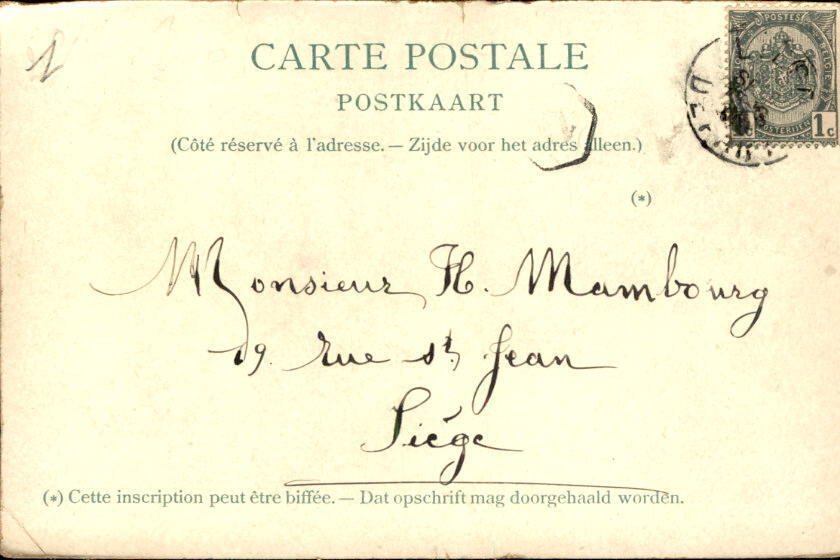 1
CARTE POSTALE
POSTKAART
(Côté réservé à l'adresse. — Zijde voor het adres alleen.)
POSTES
1c
(*)
Monsieur H. Mambourg
19. rue st Jean
Liége
(*) Cette inscription peut être biffée. — Dat opschrift mag doorgehaald worden.